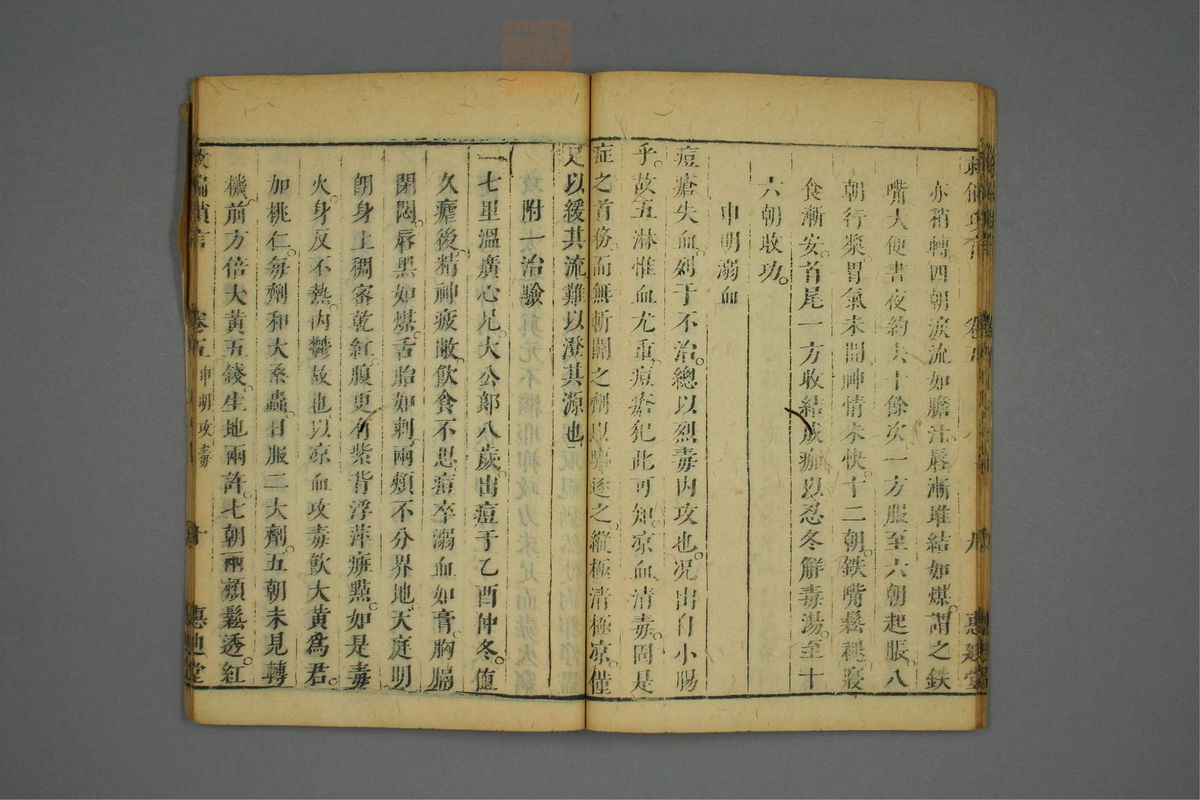 亦稍轉。四朝淚流如膽汁。唇漸堆結如煤。謂之鉄
嘴。大便晝夜約共十餘次。一方服至六朝起脹。八
朝行漿。胃氣未開。神情未快。十二朝。鉄嘴鬆褪。寢
食漸安。首尾一方收結成痂。以忍冬解毒湯。至十
六朝收功。
申明溺血
痘瘡失血。列于不治。總以烈毒內攻也。况出自小腸
乎。故五淋惟血尤重。痘瘡犯此可知。凉血清毒。固是
症之首務。而無斬關之劑以驅逐之。縱極清極凉。僅
足以緩其流。難以澄其源也。
附一治驗
一七里溫廣心兄大公郎八歲。出痘于乙酉仲冬。值
久瘧後。精神疲敝。飲食不思。痘卒溺血如膏。胸膈
閉悶。唇黑如煤。舌胎如刺。兩頰不分界地。天庭明
朗。身上稠密乾紅。腹更有紫背浮萍㾦點。如是毒
火。身反不熱。內鬱故也。以凉血攻毒飲大黃為君。
加桃仁。每劑和大桑蟲。日服二大劑。五朝未見轉
機。前方倍大黃五錢。生地兩許。七朝兩頰鬆透。紅
卷五 申明攻毒
十
惠迪堂